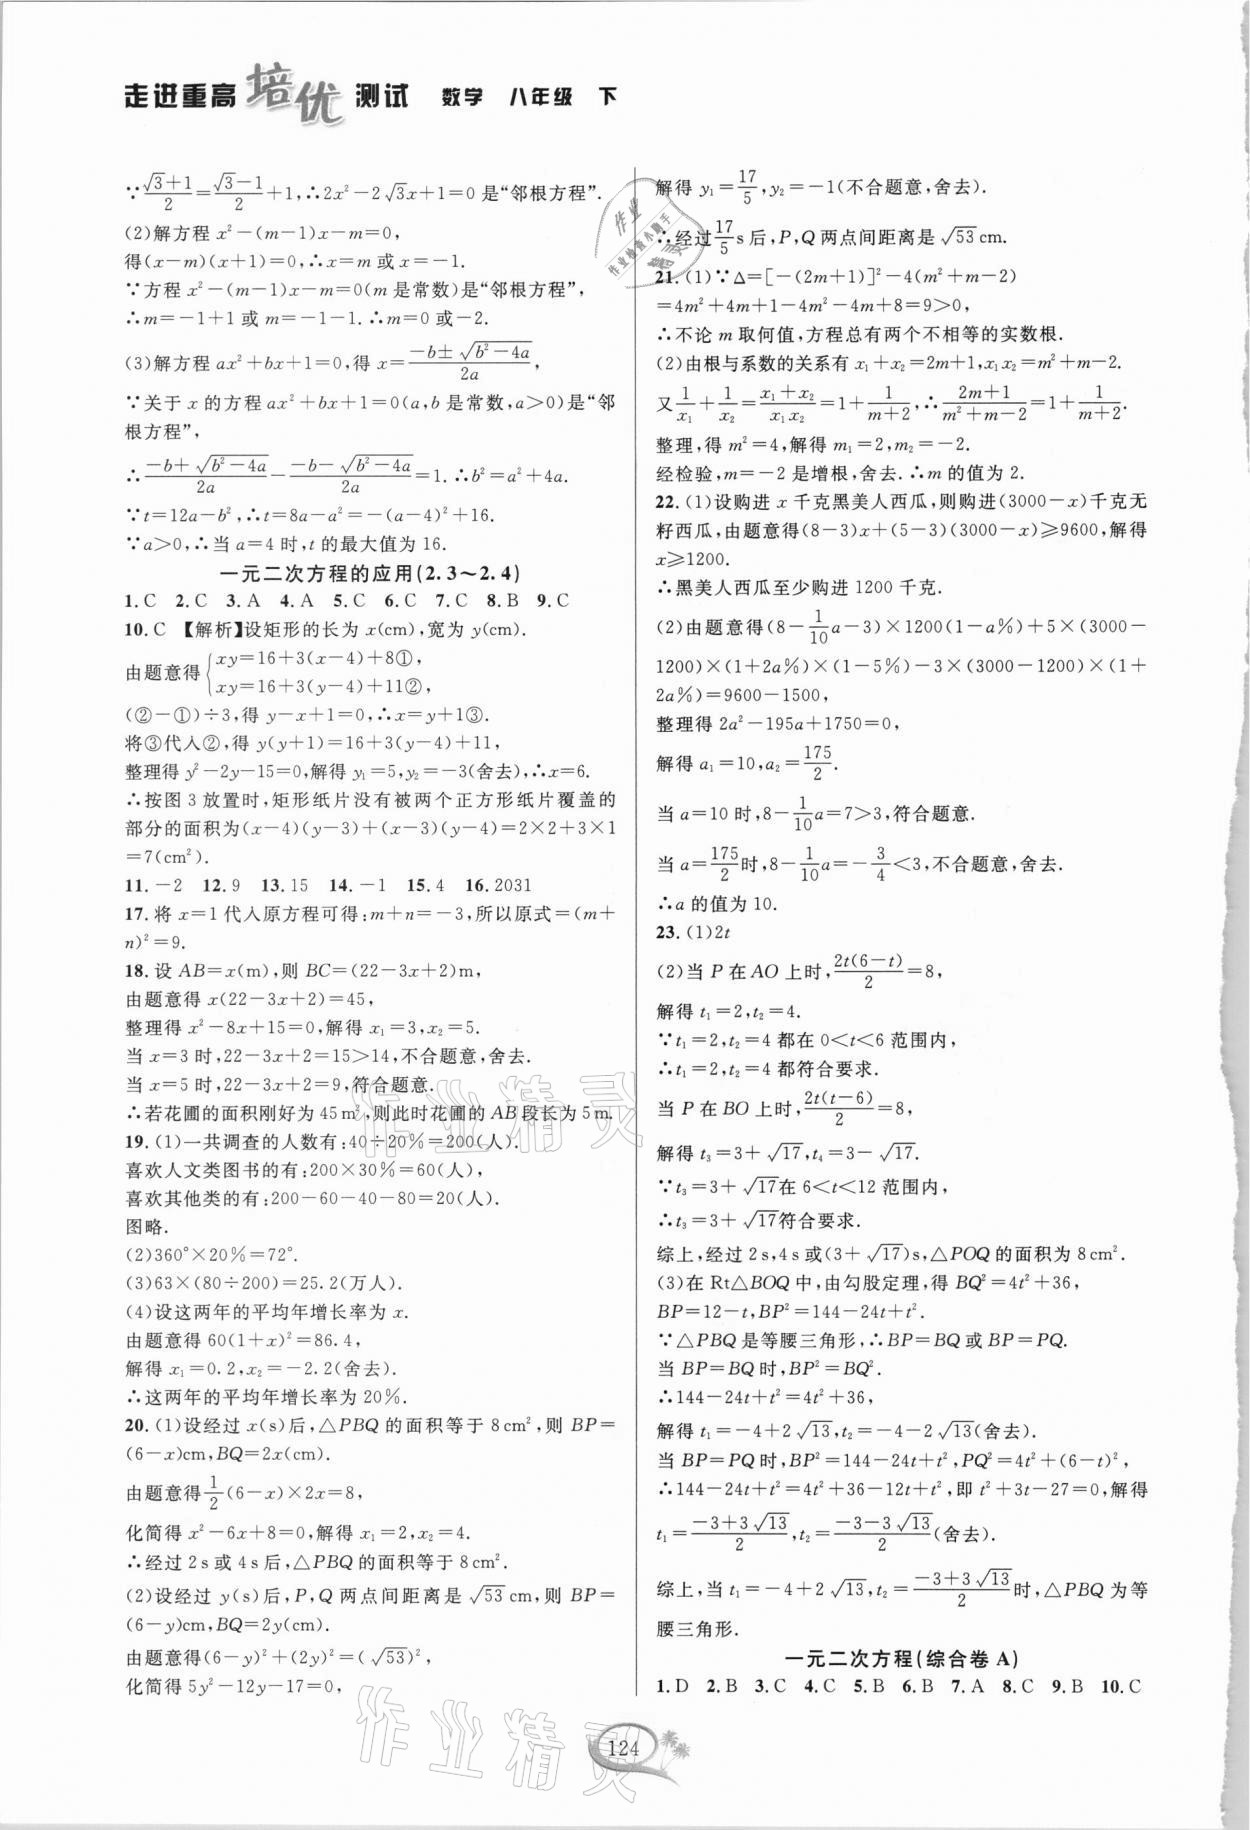 走进重高 培优 测试 数学 八年级 下
∵(√3+1)/2=(√3-1)/2+1,∴2x²-2√3x+1=0是“邻根方程”.
(2)解方程 x²-(m-1)x-m=0,
得(x-m)(x+1)=0,∴x=m或x=-1.
∵方程 x²-(m-1)x-m=0(m是常数)是“邻根方程”,
∴m=-1+1或m=-1-1.∴m=0或-2.
(3)解方程 ax²+bx+1=0,得 x=(-b±√(b²-4a))/2a,
∵关于x的方程ax²+bx+1=0(a,b是常数,a>0)是“邻
根方程”,
∴(-b+√(b²-4a))/2a-(-b-√(b²-4a))/2a=1.∴b²=a²+4a.
∵t=12a-b²,∴t=8a-a²=-(a-4)²+16.
∵a>0,∴当a=4时,t的最大值为16.
一元二次方程的应用(2.3~2.4)
1.C 2.C 3.A 4.A 5.C 6.C 7.C 8.B 9.C
10.C 【解析】设矩形的长为x(cm),宽为y(cm).
由题意得{xy=16+3(x-4)+8①,
xy=16+3(y-4)+11②,
(②-①)÷3,得 y-x+1=0,∴x=y+1③.
将③代入②,得 y(y+1)=16+3(y-4)+11,
整理得 y²-2y-15=0,解得 y₁=5,y₂=-3(舍去),∴x=6.
∴按图3放置时,矩形纸片没有被两个正方形纸片覆盖的
部分的面积为(x-4)(y-3)+(x-3)(y-4)=2×2+3×1
=7(cm²).
11.-2 12.9 13.15 14.-1 15.4 16.2031
17.将x=1代入原方程可得:m+n=-3,所以原式=(m+
n)²=9.
18.设AB=x(m),则BC=(22-3x+2)m,
由题意得x(22-3x+2)=45,
整理得 x²-8x+15=0,解得 x₁=3,x₂=5.
当x=3时,22-3x+2=15>14,不合题意,舍去.
当x=5时,22-3x+2=9,符合题意.
∴若花圃的面积刚好为45m²,则此时花圃的AB段长为5m.
19.(1)一共调查的人数有:40÷20%=200(人).
喜欢人文类图书的有:200×30%=60(人),
喜欢其他类的有:200-60-40-80=20(人).
图略.
(2)360°×20%=72°.
(3)63×(80÷200)=25.2(万人).
(4)设这两年的平均年增长率为x.
由题意得60(1+x)²=86.4,
解得x₁=0.2,x₂=-2.2(舍去).
∴这两年的平均年增长率为20%.
20.(1)设经过x(s)后,△PBQ的面积等于8cm²,则BP=
(6-x)cm,BQ=2x(cm).
由题意得1/2(6-x)×2x=8,
化简得 x²-6x+8=0,解得 x₁=2,x₂=4.
∴经过2s或4s后,△PBQ的面积等于8cm².
(2)设经过y(s)后,P,Q两点间距离是√53cm,则BP=
(6-y)cm,BQ=2y(cm).
由题意得(6-y)²+(2y)²=(√53)²,
化简得5y²-12y-17=0,
解得 y₁=17/5,y₂=-1(不合题意,舍去).
∴经过17/5s后,P,Q两点间距离是√53cm.
21.(1)∵Δ=[-(2m+1)]²-4(m²+m-2)
=4m²+4m+1-4m²-4m+8=9>0,
∴不论m取何值,方程总有两个不相等的实数根.
(2)由根与系数的关系有x₁+x₂=2m+1,x₁x₂=m²+m-2.
又1/x₁+1/x₂=(x₁+x₂)/x₁x₂=1+1/(m+2),∴(2m+1)/(m²+m-2)=1+1/(m+2).
整理,得m²=4,解得m₁=2,m₂=-2.
经检验,m=-2是增根,舍去.∴m的值为2.
22.(1)设购进x千克黑美人西瓜,则购进(3000-x)千克无
籽西瓜,由题意得(8-3)x+(5-3)(3000-x)≥9600,解得
x≥1200.
∴黑美人西瓜至少购进1200千克.
(2)由题意得(8-1/10a-3)×1200(1-a%)+5×(3000-
1200)×(1+2a%)×(1-5%)-3×(3000-1200)×(1+
2a%)=9600-1500,
整理得2a²-195a+1750=0,
解得a₁=10,a₂=175/2.
当a=10时,8-1/10a=7>3,符合题意.
当a=175/2时,8-1/10a=-3/4<3,不合题意,舍去.
∴a的值为10.
23.(1)2t
(2)当P在AO上时,2t(6-t)/2=8,
解得t₁=2,t₂=4.
∵t₁=2,t₂=4都在0<t<6范围内,
∴t₁=2,t₂=4都符合要求.
当P在BO上时,2t(t-6)/2=8,
解得t₃=3+√17,t₄=3-√17.
∵t₃=3+√17在6<t<12范围内,
∴t₃=3+√17符合要求.
综上,经过2s,4s或(3+√17)s,△POQ的面积为8cm².
(3)在Rt△BOQ中,由勾股定理,得BQ²=4t²+36,
BP=12-t,BP²=144-24t+t².
∵△PBQ是等腰三角形,∴BP=BQ或BP=PQ.
当BP=BQ时,BP²=BQ².
∴144-24t+t²=4t²+36,
解得t₁=-4+2√13,t₂=-4-2√13(舍去).
当BP=PQ时,BP²=144-24t+t²,PQ²=4t²+(6-t)²,
∴144-24t+t²=4t²+36-12t+t²,即t²+3t-27=0,解得
t₁=(-3+3√13)/2,t₂=(-3-3√13)/2(舍去).
综上,当t₁=-4+2√13,t₂=(-3+3√13)/2时,△PBQ为等
腰三角形.
一元二次方程(综合卷A)
1.D 2.B 3.C 4.C 5.B 6.B 7.A 8.C 9.B 10.C
124
作业
作业检查小助手
精灵
作业精灵
作业精灵